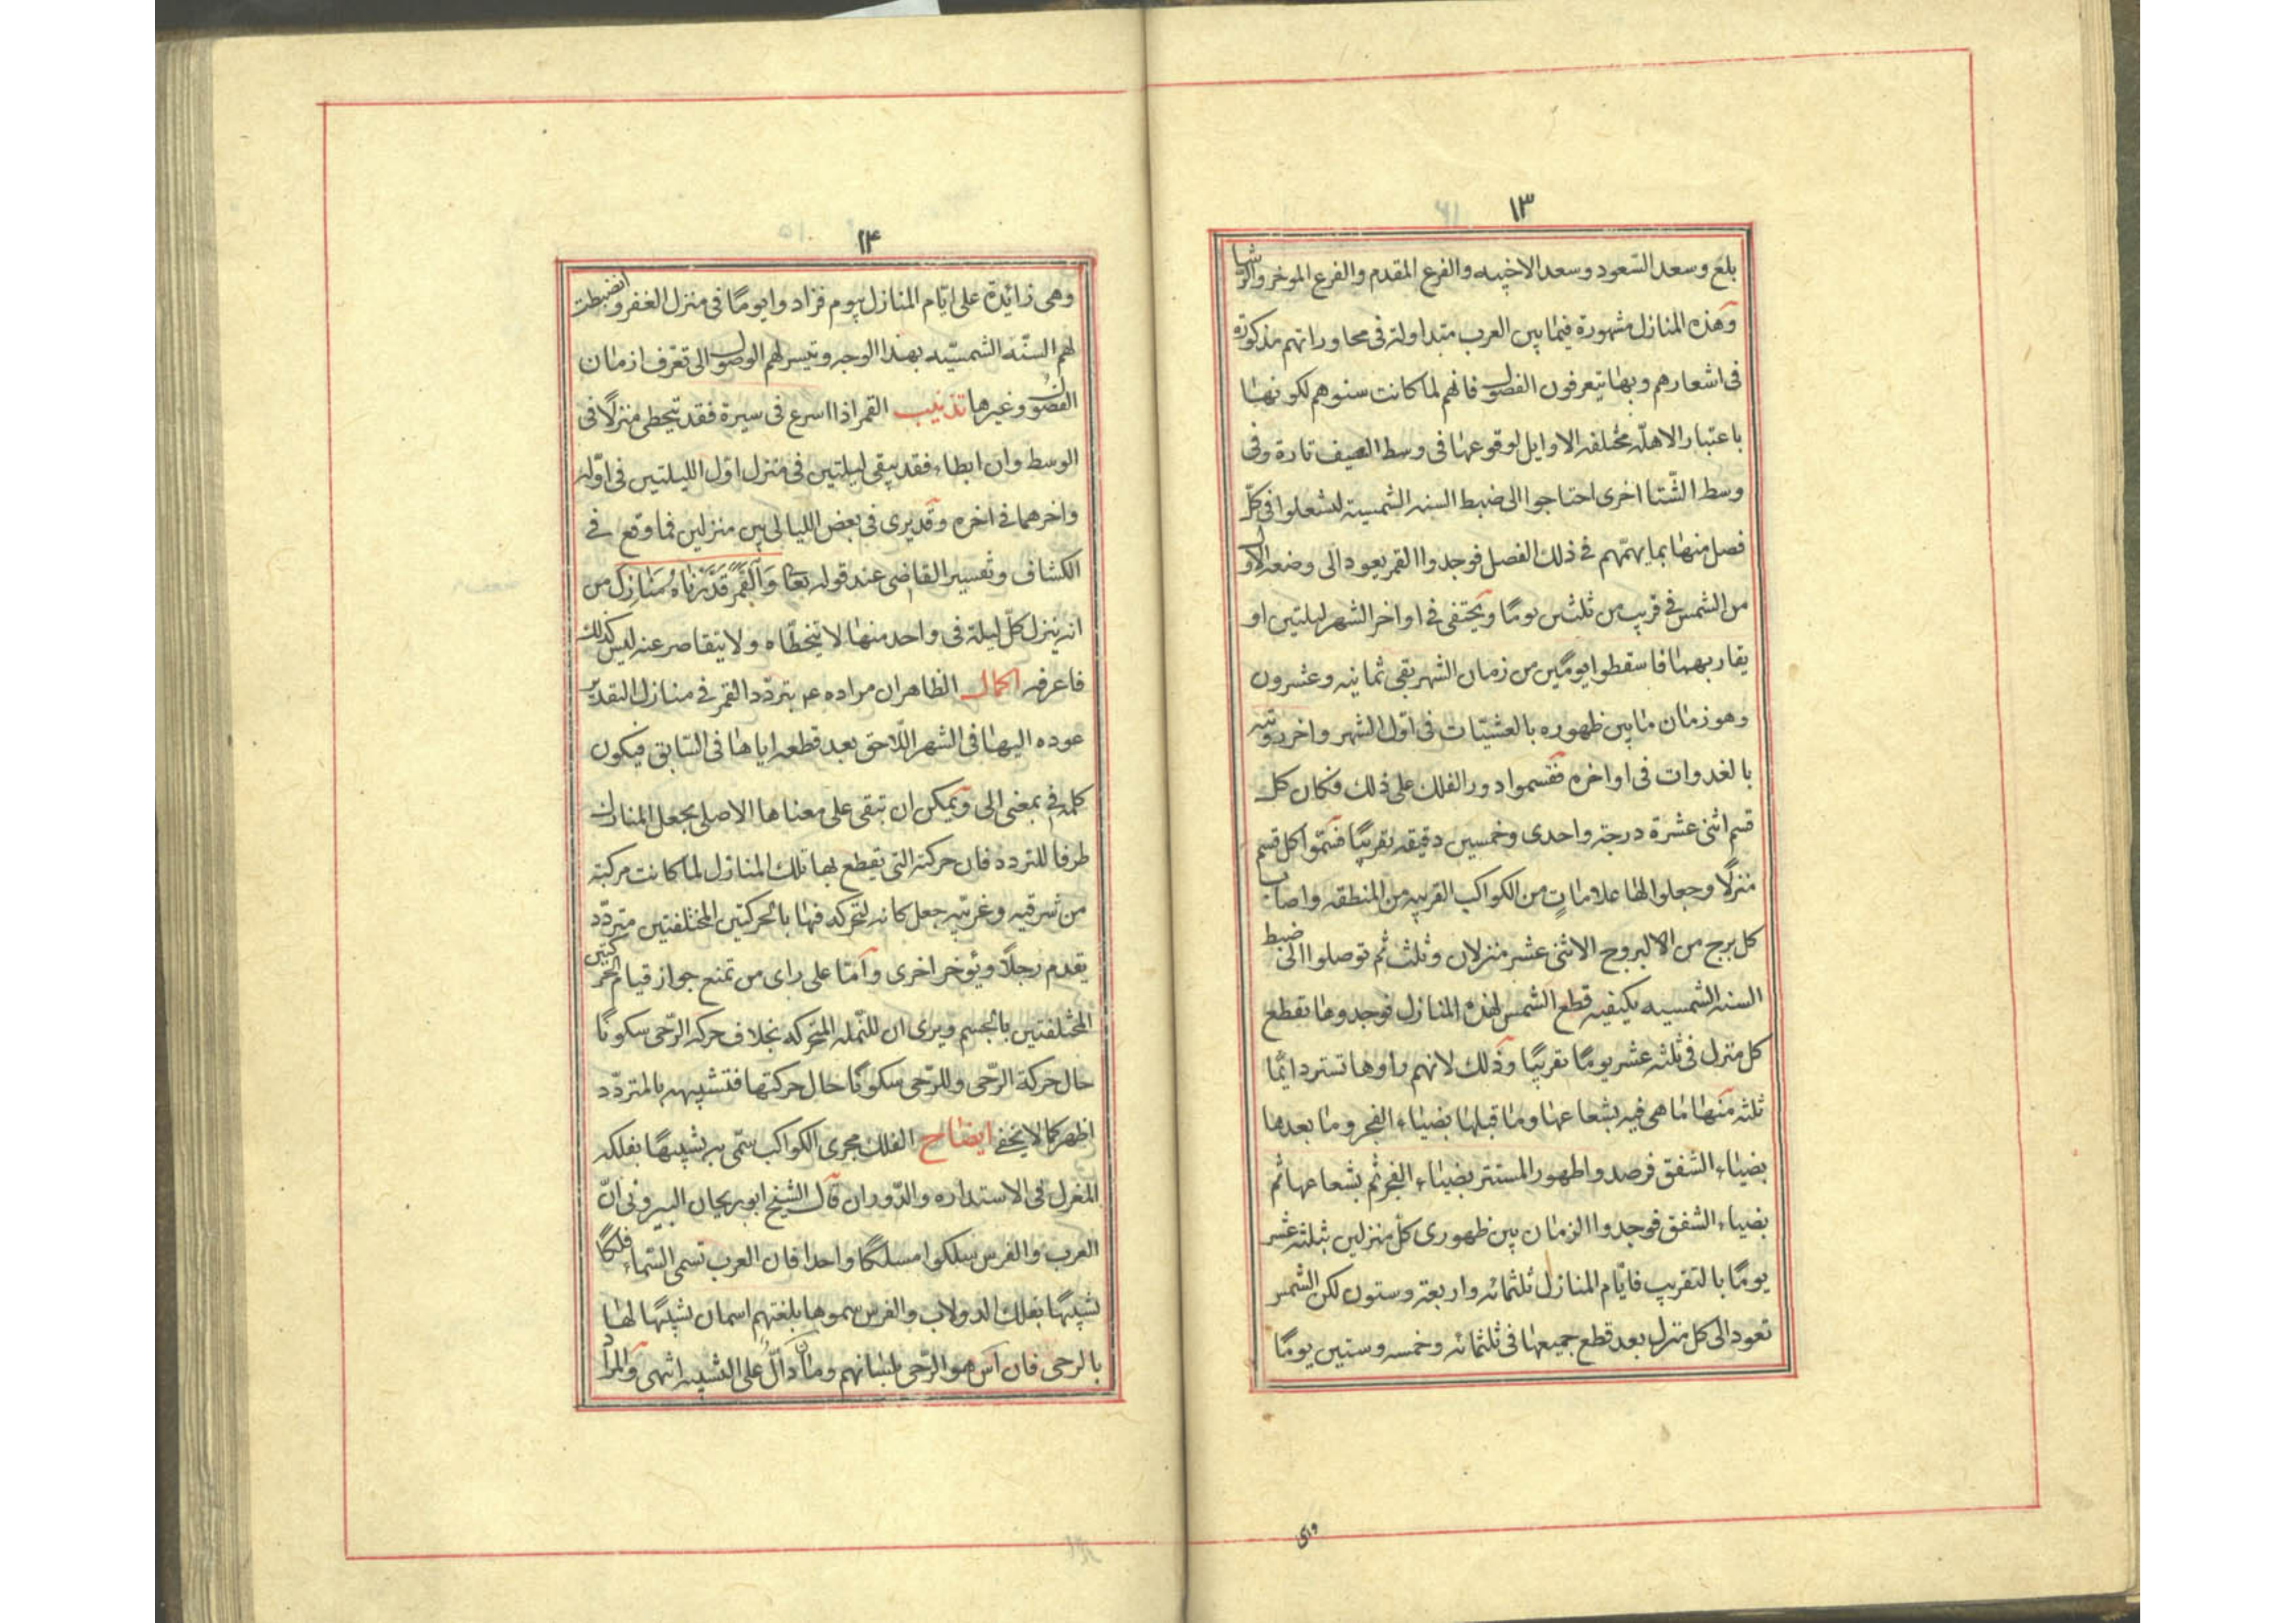 ١٣
بلع وسعد السعود وسعد الاخبيه والفرع المقدم والفرع الموخر والرشا
وهذه المنازل مشهورة فيما بين العرب متداولة فى محاوراتهم مذكورة
فى اشعارهم وبها يتعرفون الفصول فانهم لما كانت سنوهم لكونها
باعتبار الاهلّه مختلفه الاوايل لوقوعها فى وسط الصيف تارة وفى
وسط الشّتا اخرى احتاجوا الى ضبط السنه الشمسية ليشعلوا فى كلّ
فصل منها بما يهمّهم فى ذلك الفصل فوجدوا القمر يعود الى وضعه الاول
من الشمس فى قريب من ثلثين يومًا ويختفى فى اواخر الشهر ليلتين او
يقاربهما فاسقطوا يومين من زمان الشهر بقى ثمانيه وعشرون
وهو زمان ما بين ظهوره بالعشيّات فى اوّل الشهر واخر رويته
بالغدوات فى اواخره فقسموا دور الفلك على ذلك فكان كل
قسم اثنى عشرة درجة واحدى وخمسين دقيقه تقريبًا فسمّوا كل قسم
منزلًا وجعلوا لها علاماتٍ من الكواكب القريبه من المنطقه واصاب
كل برج من الا البروج الاثنى عشر منزلان وثلث ثم توصلوا الى ضبط
السنه الشمسيه بكيفيه قطع الشمس لهذه المنازل فوجدوها تقطع
كل منزل فى ثلثه عشر يومًا تقريبًا وذلك لانهم راوها تستر دائمًا
ثلثه منها ما هى فيه بشعاعها وما قبلها بضياء الفجر وما بعدها
بضياء الشفق فرصدوا ظهور المستتر بضياء الفجر ثم بشعاعها ثم
بضياء الشفق فوجدوا الزمان بين ظهورى كل منزلين ثلثه عشر
يومًا بالتقريب فايّام المنازل ثلثمائه واربعة وستون لكن الشمس
تعود الى كل منزل بعد قطع جميعها فى ثلثمائه وخمسه وستين يومًا
وهى
١٤
وهى زائدة على ايّام المنازل بيوم فزادوا يومًا فى منزل الغفر وانضبطت
لهم السنّه الشمسيّه بهذا الوجه وتيسر لهم الوصول الى تعرّف ازمان
الفصول وغيرها تذنيب القمر اذا اسرع فى سيره فقد يتخطى منزلًا فى
الوسط وان ابطاء فقد يبقى ليلتين فى منزل اوّل الليلتين فى اوّله
واخرهما فى اخره وقد يرى فى بعض الليالى بين منزلين فما وقع فى
الكشاف وتفسير القاضى عند قوله تعا وَالْقَمَرَ قَدَّرْنَاهُ مَنَازِلَ من
انه ينزل كلّ ليلة فى واحد منها لا يتخطّاه ولا يتقاصر عنه ليس كذلك
فاعرفه اكمال الظاهر ان مراده عم بتردّد القمر فى منازل التقدير
عوده اليها فى الشهر اللّاحق بعد قطعه اياها فى السّابق فيكون
كلمه فى بمعنى الى ويمكن ان تبقى على معناها الاصلى بجعل المنازل
ظرفا للتردد فان حركته التى يقطع بها تلك المنازل لما كانت مركبة
من شرقيه وغربيه جعل كانه لتحركه فيها بالحركتين المختلفتين متردّد
يقدم رجلًا ويؤخر اخرى وامّا على راى من تمنع جواز قيام الحركتين
المختلفتين بالجسم ويرى ان للنّمله المتحركه بخلاف حركه الرّحى سكونًا
حال حركة الرّحى وللرّحى سكونًا حال حركتها فتشبيهه بالمتردّد
اظهر كما لا يخفى ايضاح الفلك مجرى الكواكب سمّى به تشبيهًا بفلكه
المغزل فى الاستداره والدّوران قال الشيخ ابوريحان البيرونى انّ
العرب والفرس سلكوا مسلكًا واحدا فان العرب تسمى السّماء فلكًا
تشبيهًا بفلك الدولاب والفرس سموها بلغتهم اسمان تشبيهًا لها
بالرحى فان آس هو الرّحى بلسانهم ومان دالّ على التشبيه انتهى والمراد